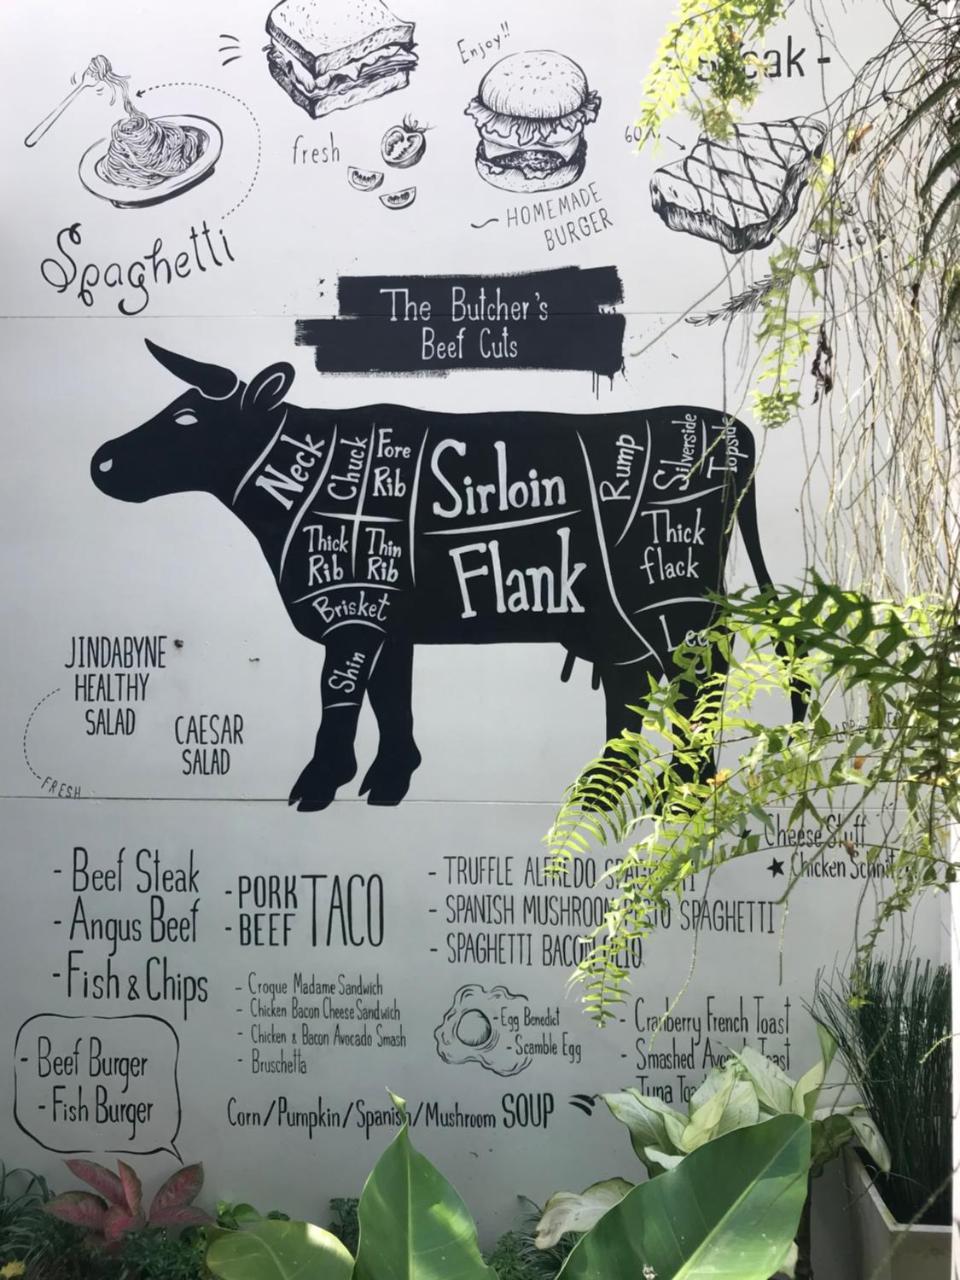 Enjoy!!
fresh
HOMEMADE
BURGER
Spaghetti
The Butcher's
Beef Cuts
Neck
Chuck
Fore
Rib
Thick
Rib
Thin
Rib
Brisket
Shin
Sirloin
Flank
Rump
Silverside
Topside
Thick
flack
Leg
JINDABYNE
HEALTHY
SALAD
FRESH
CAESAR
SALAD
- Beef Steak
- Angus Beef
- Fish & Chips
- Beef Burger
- Fish Burger
- PORK
- BEEF
TACO
- Croque Madame Sandwich
- Chicken Bacon Cheese Sandwich
- Chicken & Bacon Avocado Smash
- Bruschetta
Corn/Pumpkin/Spanish/Mushroom SOUP
- TRUFFLE ALFREDO SPAGHETTI
- SPANISH MUSHROOM PESTO SPAGHETTI
- SPAGHETTI BACON OLIO
- Egg Benedict
- Scamble Egg
★ Cheese Stuff
★ Chicken
- Cranberry French Toast
- Smashed Avocado Toast
Tuna